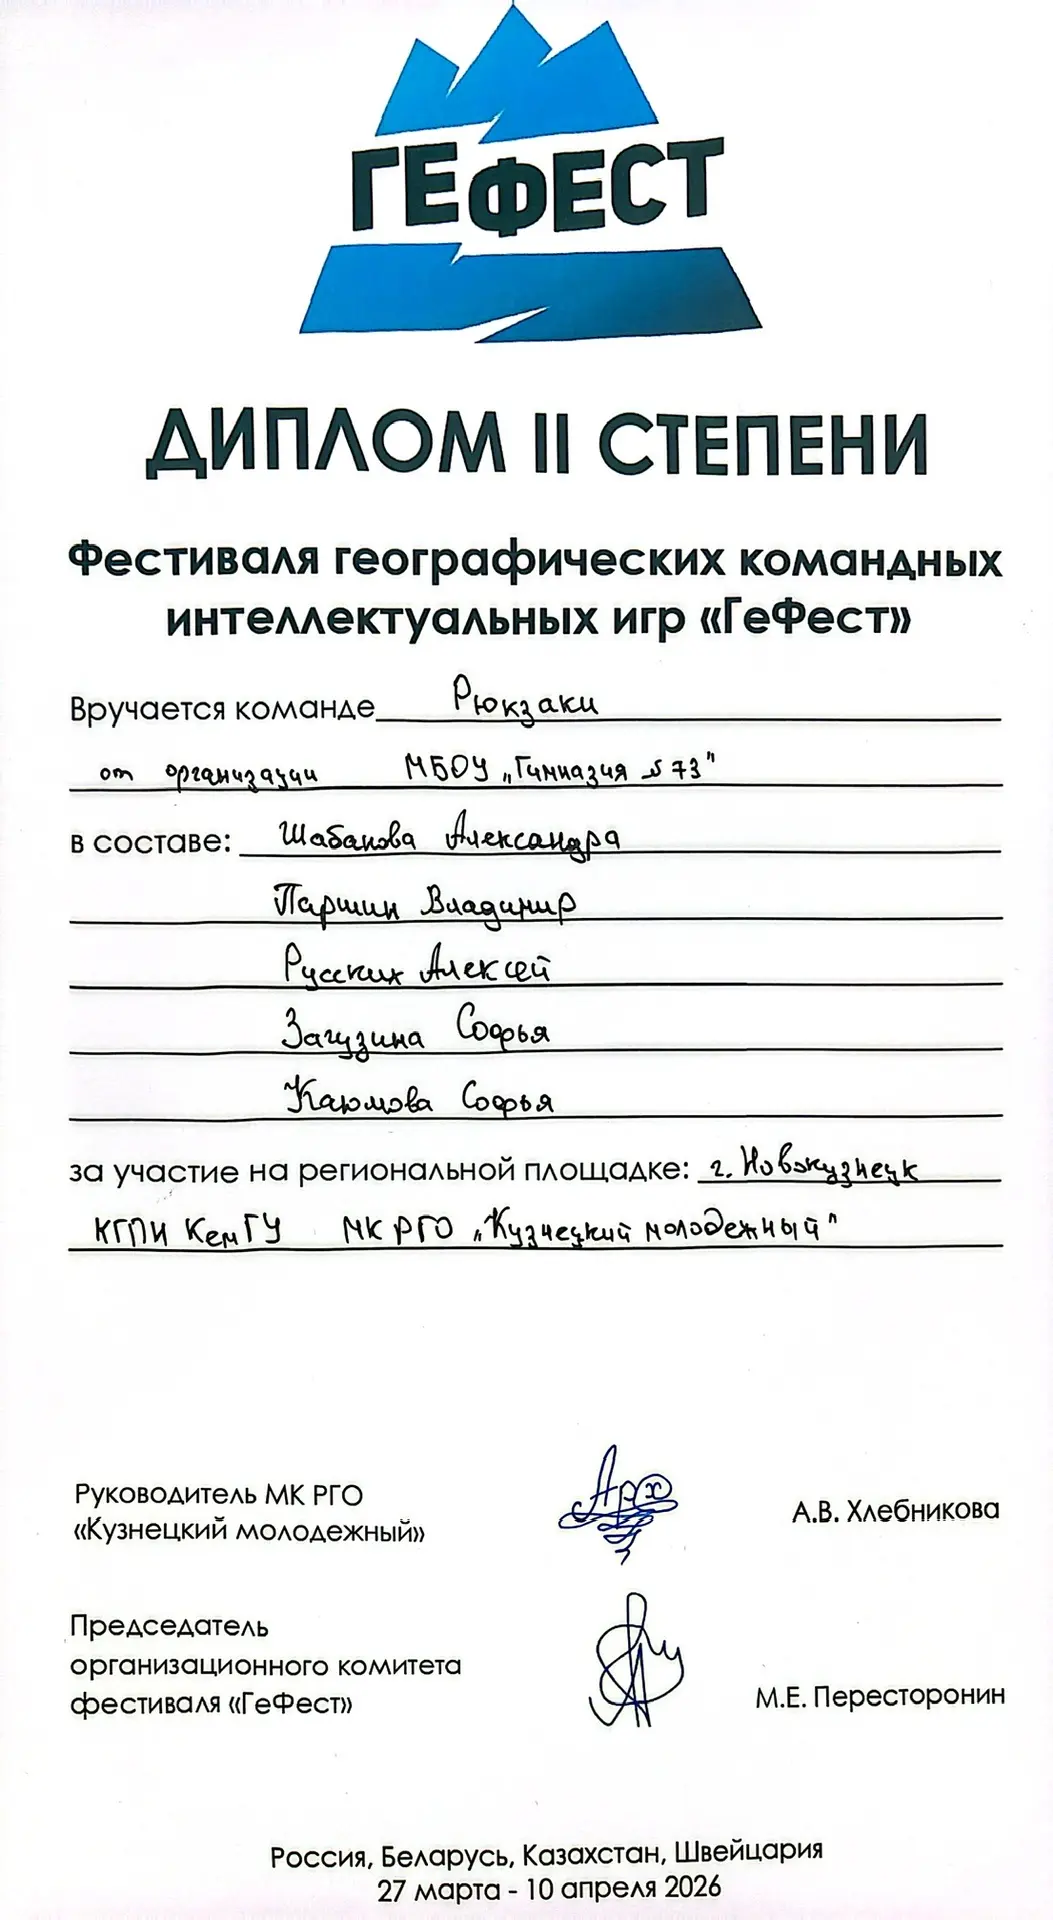 ГЕФЕСТ
ДИПЛОМ II СТЕПЕНИ
Фестиваля географических командных
интеллектуальных игр «ГеФест»
Вручается команде Рюкзаки
от организации МБОУ „Гимназия №73"
в составе: Шабанова Александра
Паршин Владимир
Русских Алексей
Загузина Софья
Каюмова Софья
за участие на региональной площадке: г. Новокузнецк
КГПИ КемГУ МК РГО „Кузнецкий молодежный"
Руководитель МК РГО
«Кузнецкий молодежный»
А.В. Хлебникова
Председатель
организационного комитета
фестиваля «ГеФест»
М.Е. Пересторонин
Россия, Беларусь, Казахстан, Швейцария
27 марта - 10 апреля 2026